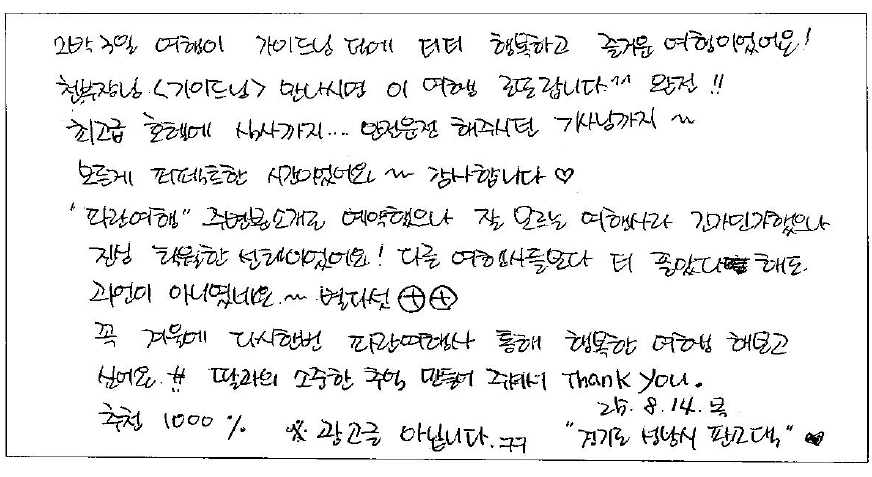 2박3일 여행이 가이드님 덕에 더더 행복하고 즐거운 여행이었어요!
천부장님 <가이드님> 만나시면 이 여행 강추랍니다^^ 완전 !!
최고급 호텔에 식사까지... 안전운전 해주시던 기사님까지 ~
모든게 퍼펙트한 시간이었어요 ~ 감사합니다 ♡
"파란여행" 주변분소개로 예약했으나 잘 모르는 여행사라 긴가민가했으나
진심 탁월한 선택이었어요! 다른 여행사들보다 더 좋았다 해도
과언이 아니였네요 ~ 별다섯 ⊕⊕
꼭 겨울에 다시한번 파란여행사 통해 행복한 여행 해보고
싶어요 !! 딸과의 소중한 추억 만들어 주셔서 Thank you.
추천 1000 % 25. 8. 14. 목
※ 광고글 아닙니다. ㅋㅋ "경기도 성남시 판교댁" ♥